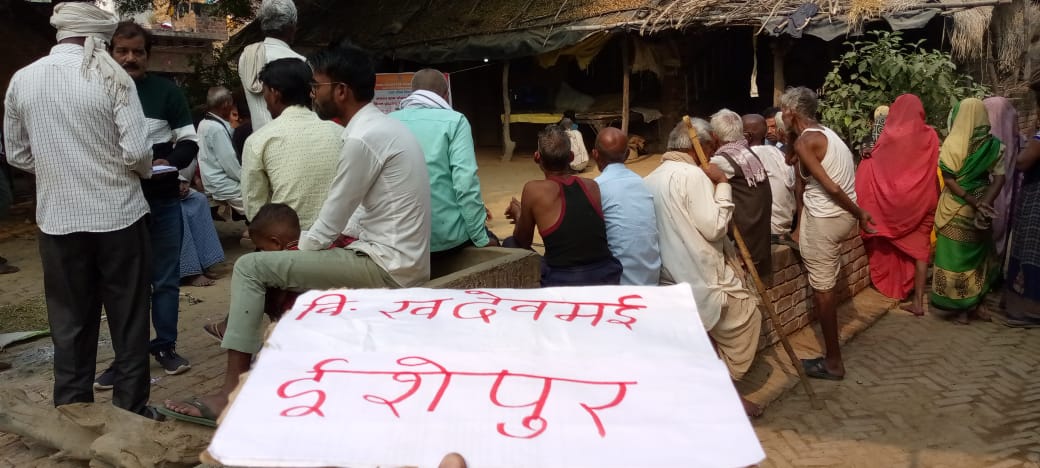 वि. खदेवमई
ईशेपुर